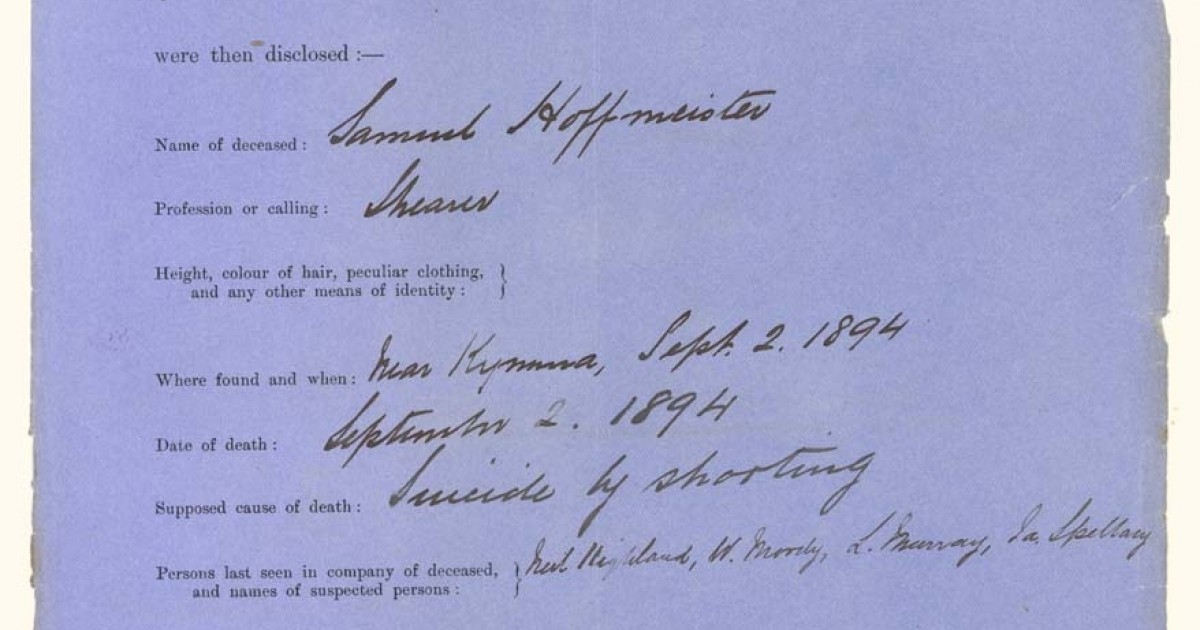 were then disclosed :—
Name of deceased : Samuel Hoffmeister
Profession or calling : Shearer
Height, colour of hair, peculiar clothing,
and any other means of identity :
Where found and when : Near Kynuna, Sept. 2. 1894
Date of death : September 2. 1894
Supposed cause of death : Suicide by shooting
Persons last seen in company of deceased, Neil Highland, W. Moody, L. Murray, Ja. Spellacy
and names of suspected persons :